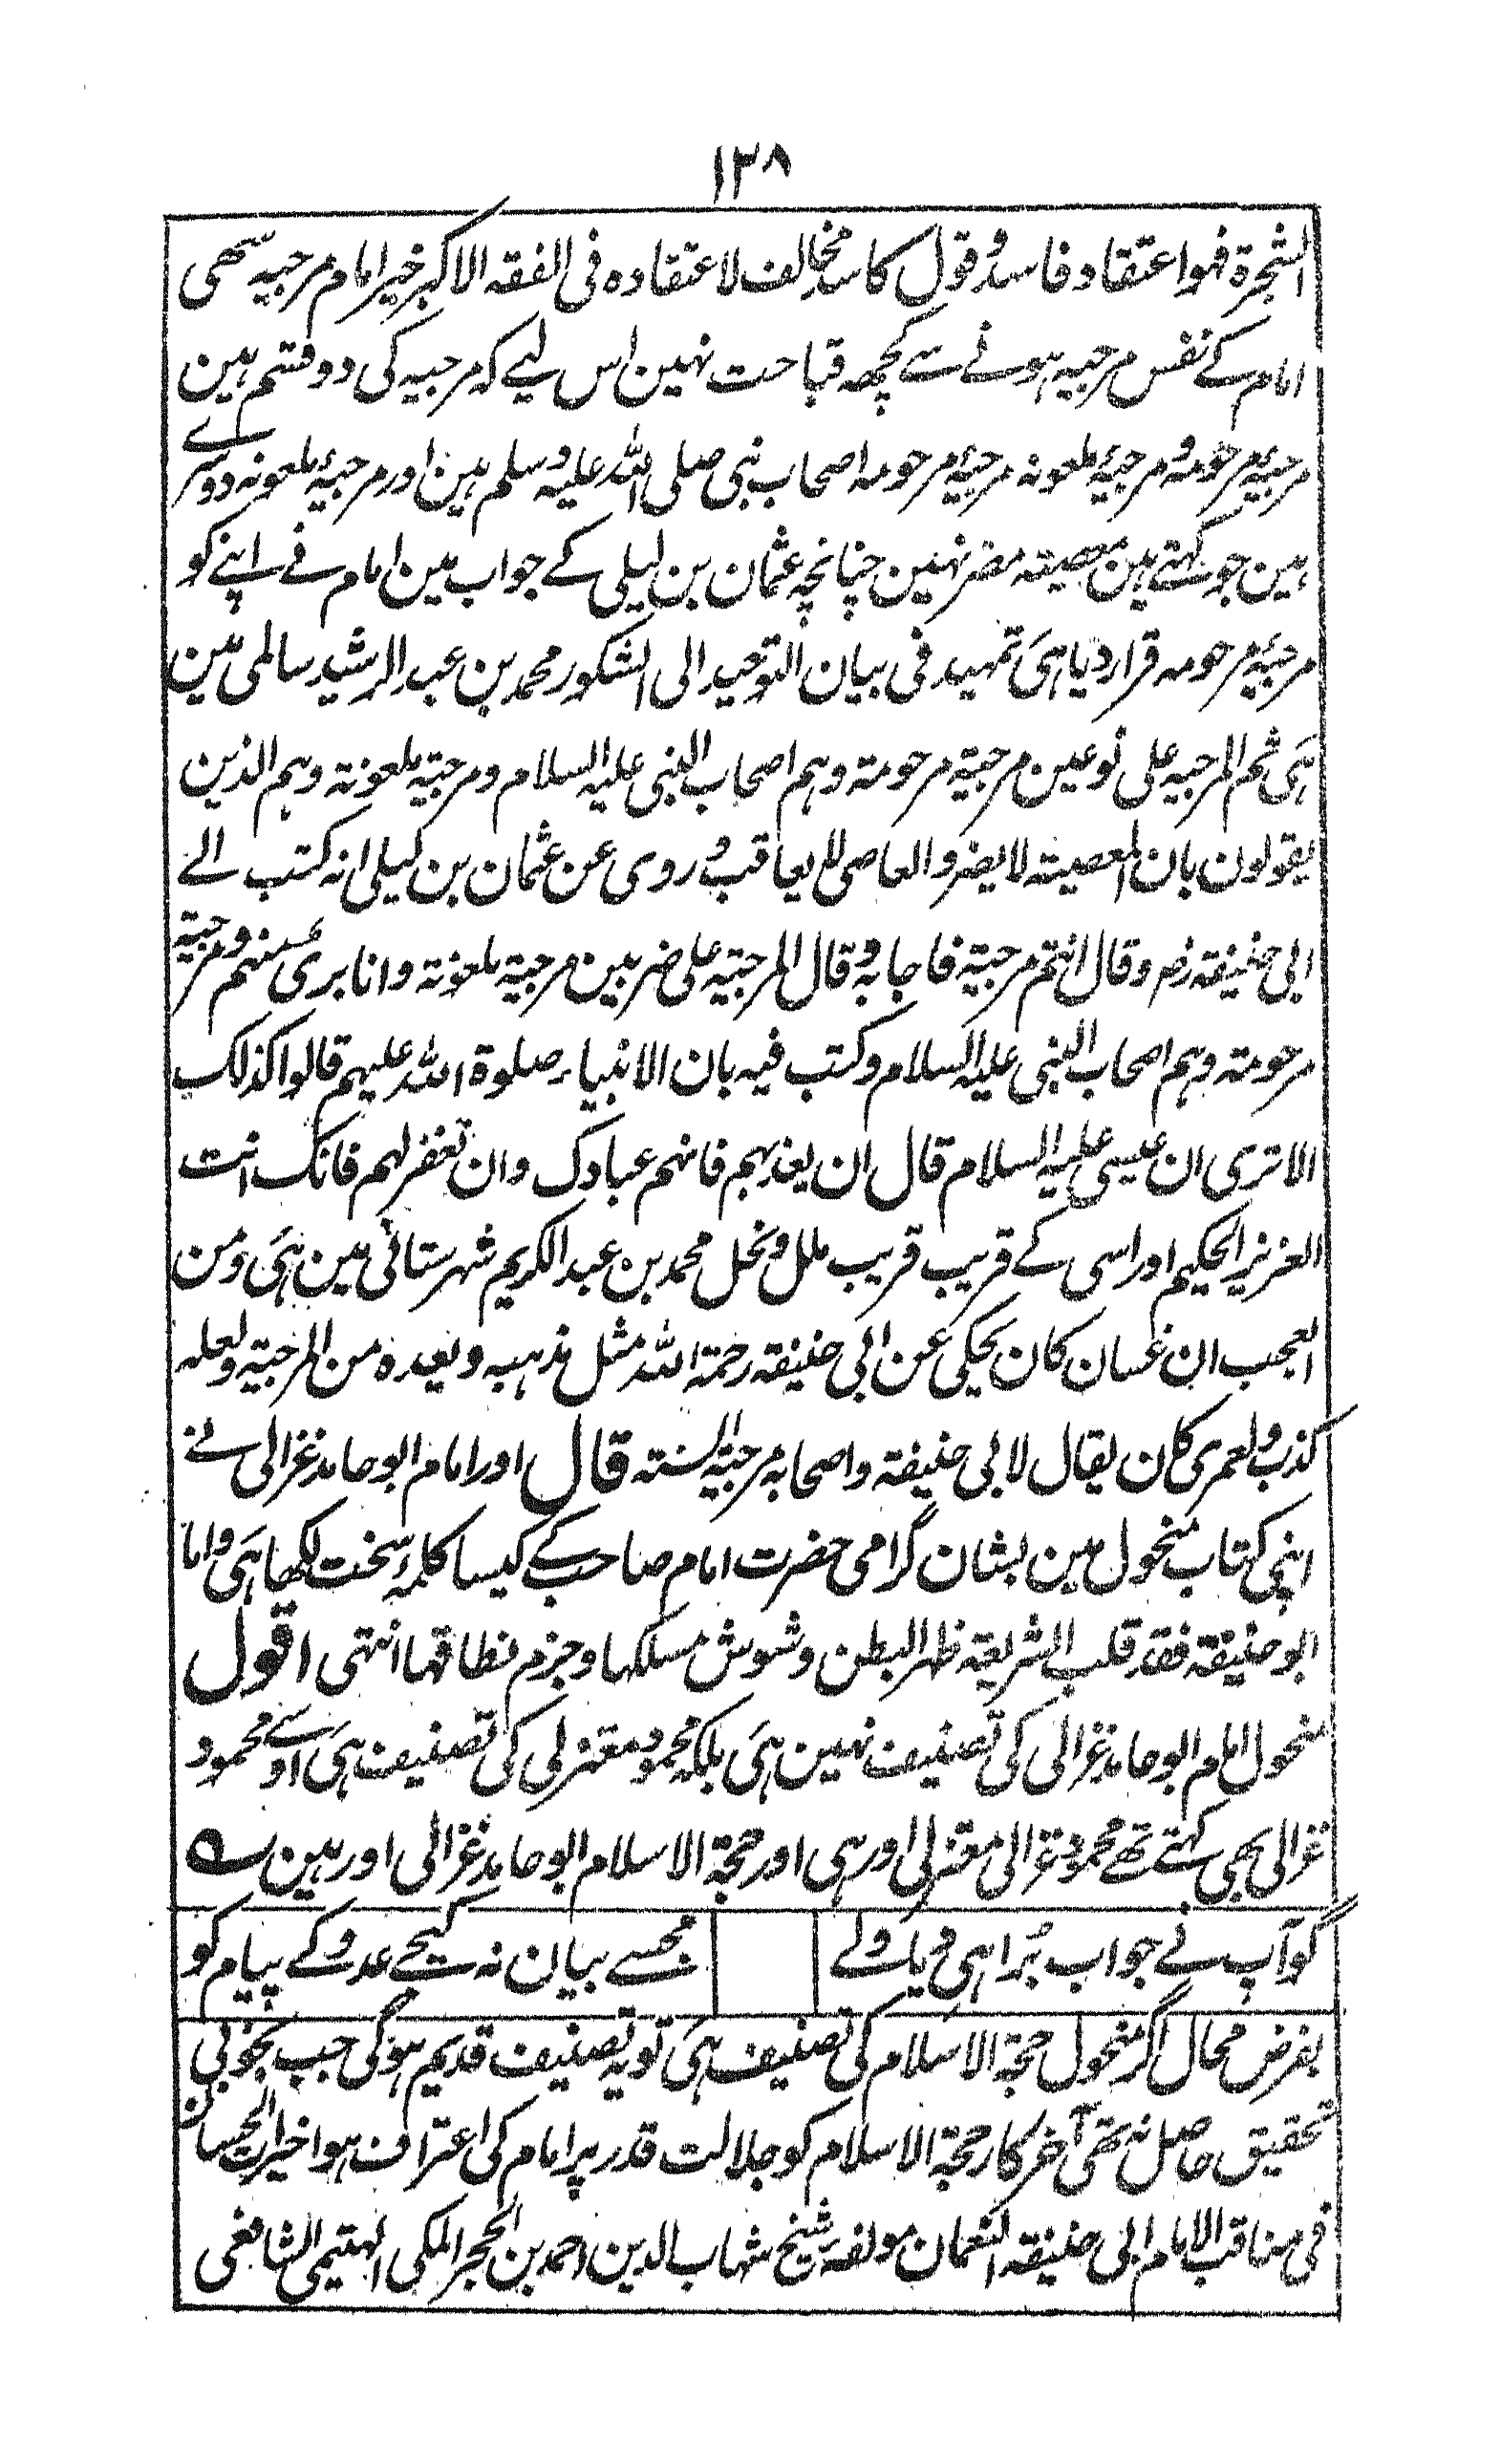 ۱۲۸
الشجرة فهو اعتقاد فاسد و قول كاسد مخالف لاعتقاده فى الفقه الاكبر خير امام مرجيه سهى
امام کے نفس مرجیہ ہونے سے کچھہ قباحت نہین اس لیے کہ مرجیہ کی دو قسم ہین
مرجیۂ مرحومہ و مرجیۂ ملعونہ مرجیۂ مرحومہ اصحاب نبی صلی اللہ علیہ وسلم ہین اور مرجیۂ ملعونہ دوسرے
ہین جو کہتے ہین معصیتہ مضر نہین چنانچہ عثمان بن لیلی کے جواب مین امام نے اپنے کو
مرجیۂ مرحومہ قرار دیا ہی تمہید فی بیان التوحید ابی الشکور محمد بن عبد الرشید سالمی مین
ہی ثم المرجیہ علی نوعین مرجیۃ مرحومۃ وہم اصحاب النبی علیہ السلام و مرجیۃ ملعونۃ وہم الذین
یقولون بان المعصیۃ لا یضر والعاصی لا یعاقب و روی عن عثمان بن لیلی انہ کتب الے
ابی حنیفۃ رضہ وقال انتم مرجیۃ فاجابہ و قال المرجیۃ علی ضربین مرجیۃ ملعونۃ وانا بری منہم و مرجیۃ
مرحومۃ وہم اصحاب النبی علیہ السلام وکتب فیہ بان الانبیاء صلوۃ اللہ علیہم قالوا کذلک
الا تری ان عیسی علیہ السلام قال ان یعذبہم فانہم عبادک وان تغفر لہم فانک انت
العزیز الحکیم اور اسی کے قریب قریب ملل و نحل محمد بن عبد الکریم شہرستانی مین ہی ومن
العجب ان غسان کان یحکی عن ابی حنیفۃ رحمۃ اللہ مثل مذہبہ ویعدہ من المرجیۃ ولعلہ
کذب ولعمری کان یقال لابی حنیفۃ واصحابہ مرجیۃ السنۃ قال اور امام ابو حامد غزالی نے
اپنی کتاب منخول مین بشان گرامی حضرت امام صاحب کے کیسا کلمۂ سخت لکھا ہی واما
ابو حنیفۃ فقد قلب الشریعۃ ظہر البطن وشوش مسلکہا وجزم نظاقہا انتہی اقول
منخول امام ابو حامد غزالی کی تصنیف نہین ہی بلکہ محمود معتزلی کی تصنیف ہی اوسے محمود
غزالی بھی کہتے تھے محمود غزالی معتزلی اور ہی اور حجۃ الاسلام ابو حامد غزالی اور ہین ؎
گو آپ نے جواب بُرا ہی دیا ولے مجھسے بیان نہ کیجے عدو کے پیام کو
بفرض محال اگر منخول حجۃ الاسلام کی تصنیف ہی تو یہ تصنیف قدیم ہوگی جب بخوبی
تحقیق حاصل نہ تھی آخر کار حجۃ الاسلام کو جلالت قدر پر امام کی اعتراف ہوا خیرات الحسان
فی مناقب الامام ابی حنیفۃ النعمان مولفہ شیخ شہاب الدین احمد بن الحجر المکی الہیتمی الشافعی